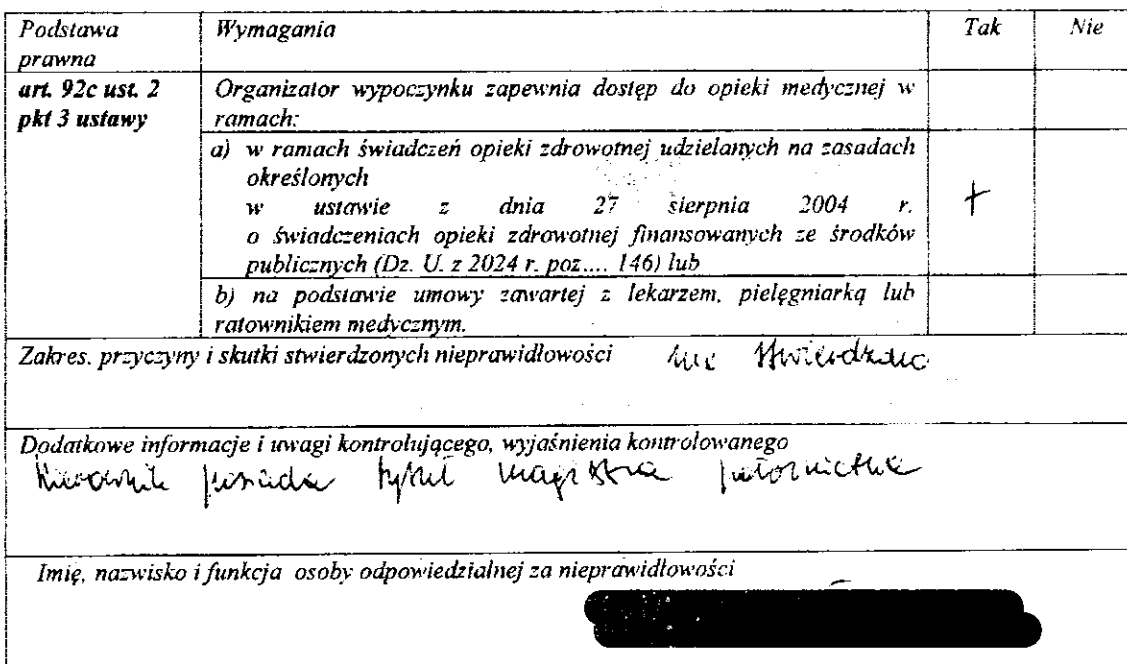 Podstawa prawna
Wymagania
Tak
Nie
art. 92c ust. 2
pkt 3 ustawy
Organizator wypoczynku zapewnia dostęp do opieki medycznej w
ramach:
a) w ramach świadczeń opieki zdrowotnej udzielanych na zasadach
określonych
w ustawie z dnia 27 sierpnia 2004 r.
o świadczeniach opieki zdrowotnej finansowanych ze środków
publicznych (Dz. U. z 2024 r. poz.... 146) lub
+
b) na podstawie umowy zawartej z lekarzem, pielęgniarką lub
ratownikiem medycznym.
Zakres, przyczyny i skutki stwierdzonych nieprawidłowości nie stwierdzono
Dodatkowe informacje i uwagi kontrolującego, wyjaśnienia kontrolowanego
Kierownik posiada tytuł magistra położnictwa
Imię, nazwisko i funkcja osoby odpowiedzialnej za nieprawidłowości